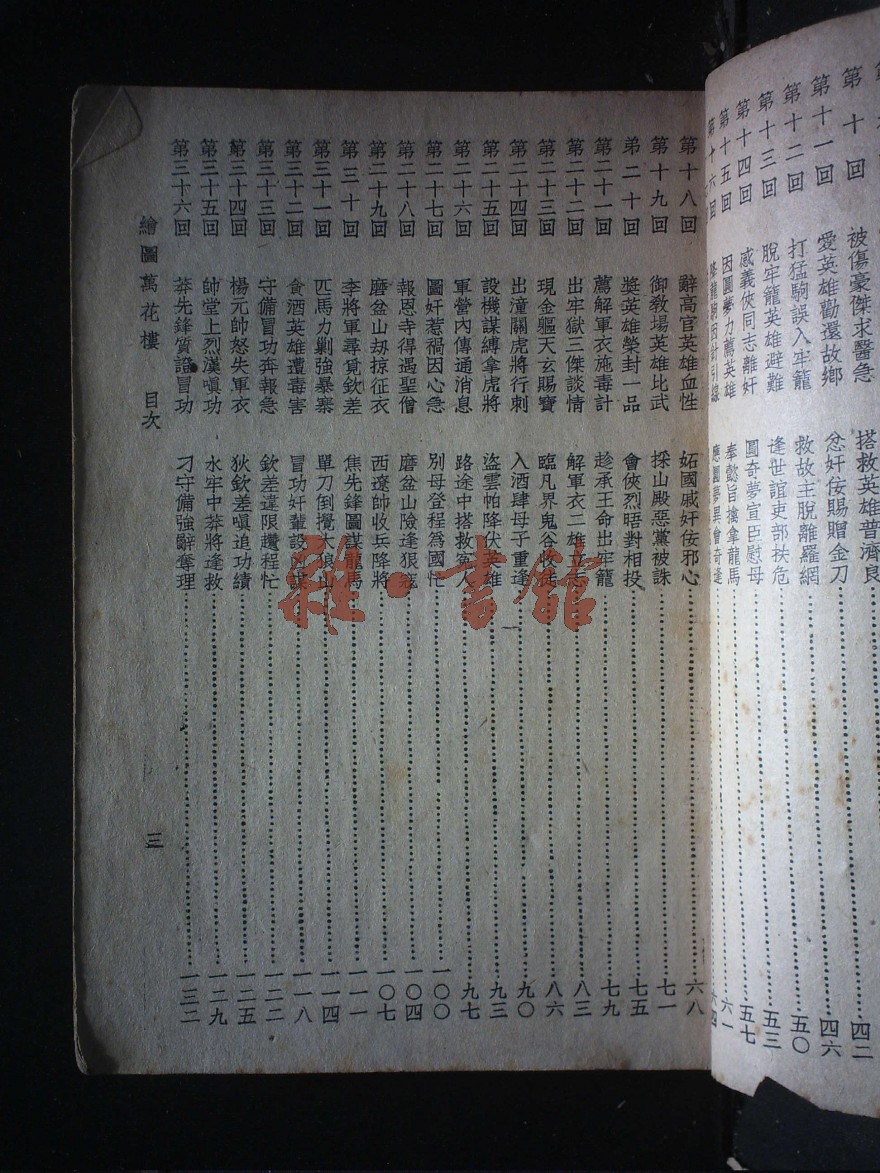 第十回 被傷豪傑求醫急 搭救英雄普濟良 四二
第十一回 愛英雄勸還故鄉 忿奸佞賜贈金刀 四六
第十二回 打猛駒誤入牢籠 救故主脫離羅網 五〇
第十三回 脫牢籠英雄避難 逢世誼吏部扶危 五三
第十四回 感義俠同志離奸 圓奇夢宣臣慰母 五七
第十五回 因圓夢力薦英雄 奉懿旨擒拿龍馬 六一
第十六回 降龍駒因針引線 應圓夢異會奇逢 六四
第十八回 辭高官英雄血性 妬國戚奸佞邪心 六八
第十九回 御敎場英雄比武 採山殿惡黨被誅 七一
弟二十回 奬英雄榮封一品 會俠烈晤對相投 七五
第二十一回 薦解軍衣施毒計 趁承王命出牢籠 七九
第二十二回 出牢獄三傑談情 解軍衣二雄立志 八三
第二十三回 現金軀天玄賜寶 臨凡界鬼谷收徒 八六
第二十四回 出潼關虎將行刺 入酒肆母子重逢 九〇
第二十五回 設機謀縛拿虎將 盜雲帕降伏英雄 九三
第二十六回 軍營內傳通消息 路途中搭救客人 九七
第二十七回 圖奸惹禍因心急 別母登程爲國忙 一〇〇
第二十八回 報恩寺得遇聖僧 磨盆山險逢狠寇 一〇四
第二十九回 磨盆山刧掠征衣 西遼帥收兵降將 一〇七
第三十回 李將軍尋覓欽差 焦先鋒圖謀龍馬 一一一
第三十一回 匹馬力剿強暴寨 單刀倒攪大狼山 一一四
第三十二回 貪酒英雄遭毒害 冒功奸輩設凶謀 一一八
第三十三回 守備冒功奔報急 欽差違限趲程忙 一二二
第三十四回 楊元帥怒失軍衣 狄欽差嗔追功績 一二五
第三十五回 帥堂上烈漢嗔功 水牢中莽將逢救 一二九
第三十六回 莽先鋒質證冒功 刁守備強辭奪理 一三二
繪圖萬花樓 目次 三
雜·書館